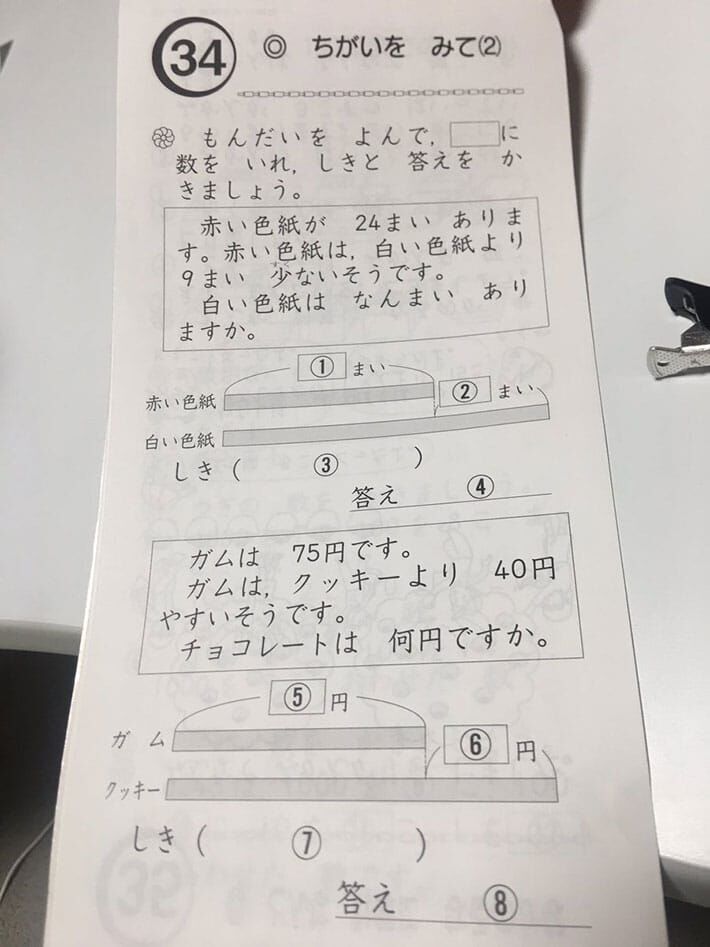 34 ◎ ちがいを みて(2)
もんだいを よんで, □に
数を いれ, しきと 答えを か
きましょう。
赤い色紙が 24まい ありま
す。赤い色紙は, 白い色紙より
9まい 少(すく)ないそうです。
白い色紙は なんまい あり
ますか。
① まい
② まい
赤い色紙
白い色紙
しき ( ③ )
答え ④
ガムは 75円です。
ガムは, クッキーより 40円
やすいそうです。
チョコレートは 何円ですか。
⑤ 円
ガム
⑥ 円
クッキー
しき ( ⑦ )
答え ⑧